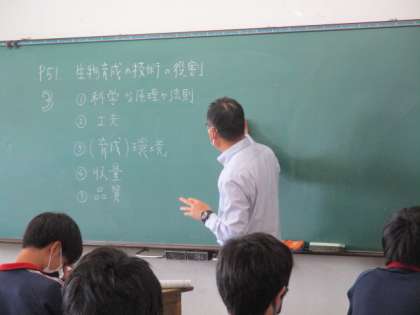 P51 生物育成の技術の役割
③ ①科学的な原理や法則
② 工夫
③ (育成)環境
④ 収量
⑤ 品質